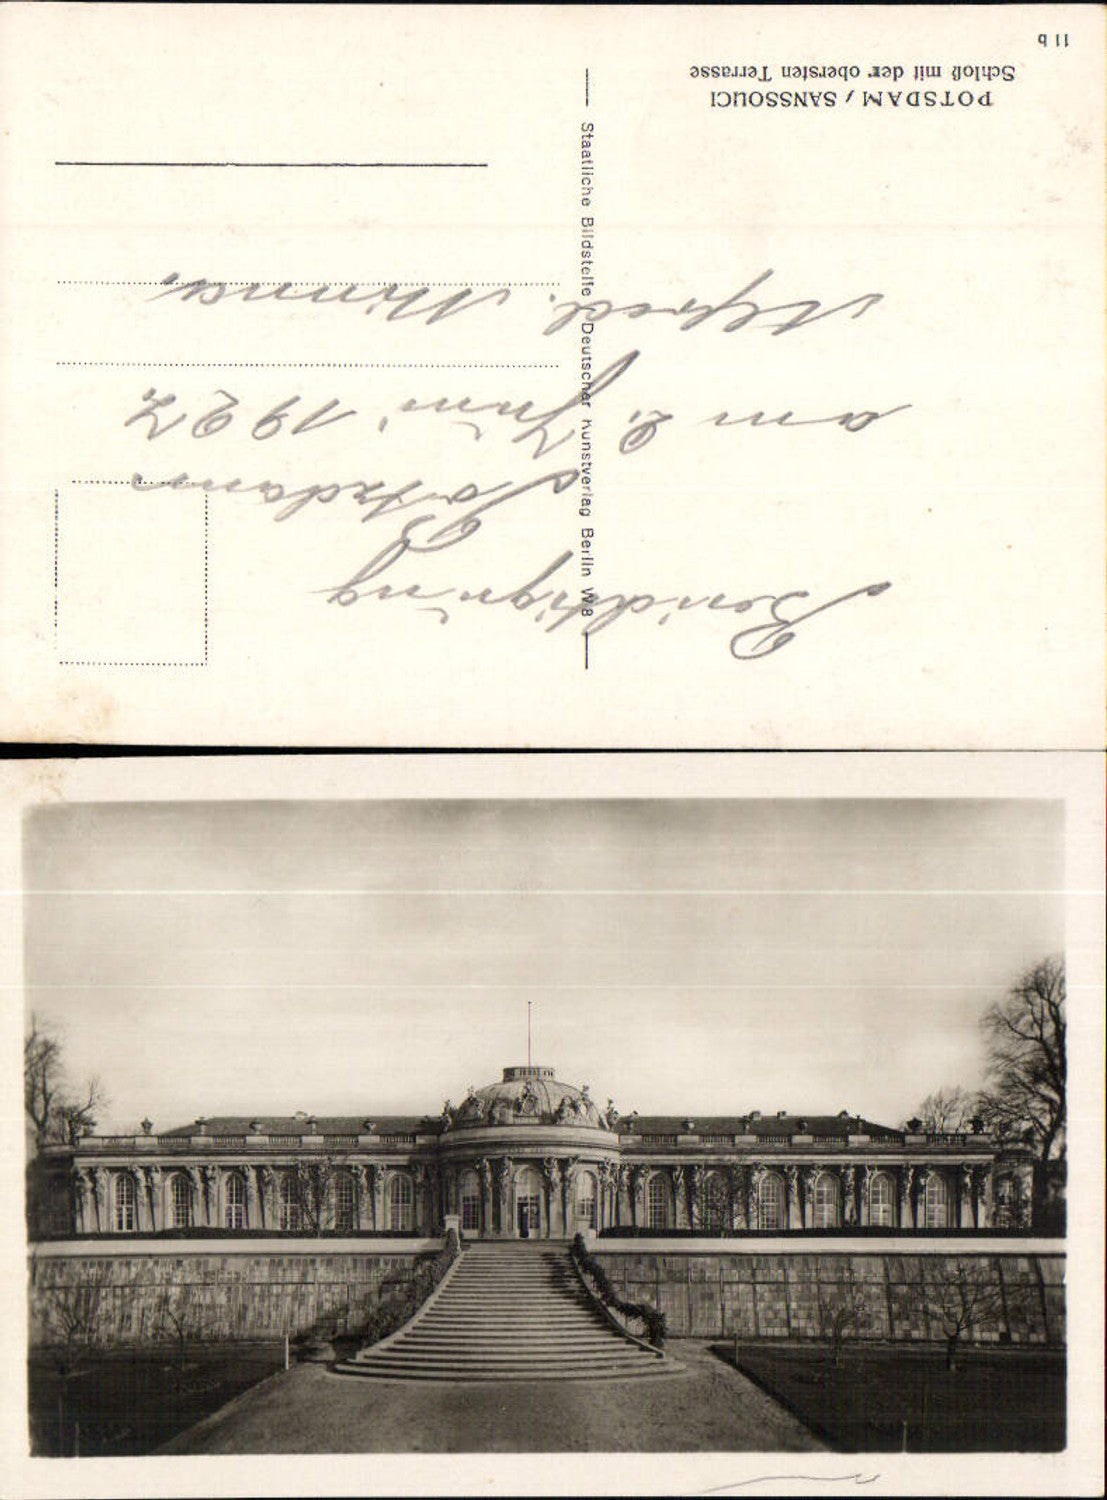 11 b
POTSDAM / SANSSOUCI
Schloß mit der obersten Terrasse
Staatliche Bildstelle Deutscher Kunstverlag Berlin W 8
Besichtigung
Potsdam
am 2. Juni 1927
Alfred